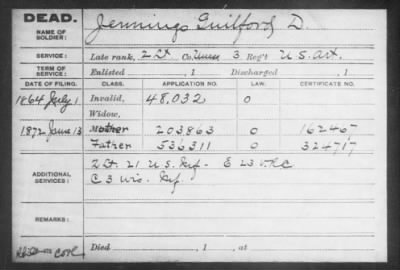 DEAD.
NAME OF SOLDIER: Jennings Guilford D.
SERVICE: Late rank, 2 Lt Co. 3 Reg't U S. Art.
TERM OF SERVICE: Enlisted , 1 Discharged , 1
DATE OF FILING. CLASS. APPLICATION NO. LAW. CERTIFICATE NO.
1864 July 1 Invalid, 48,032 0
Widow,
1872 June 13 Mother 203863 0 162467
Father 536311 0 324717
ADDITIONAL SERVICES: 2 Lt. 21 U S. Inf - E 23 V.R.C
C 3 Wis. Inf.
REMARKS:
Died , 1 , at